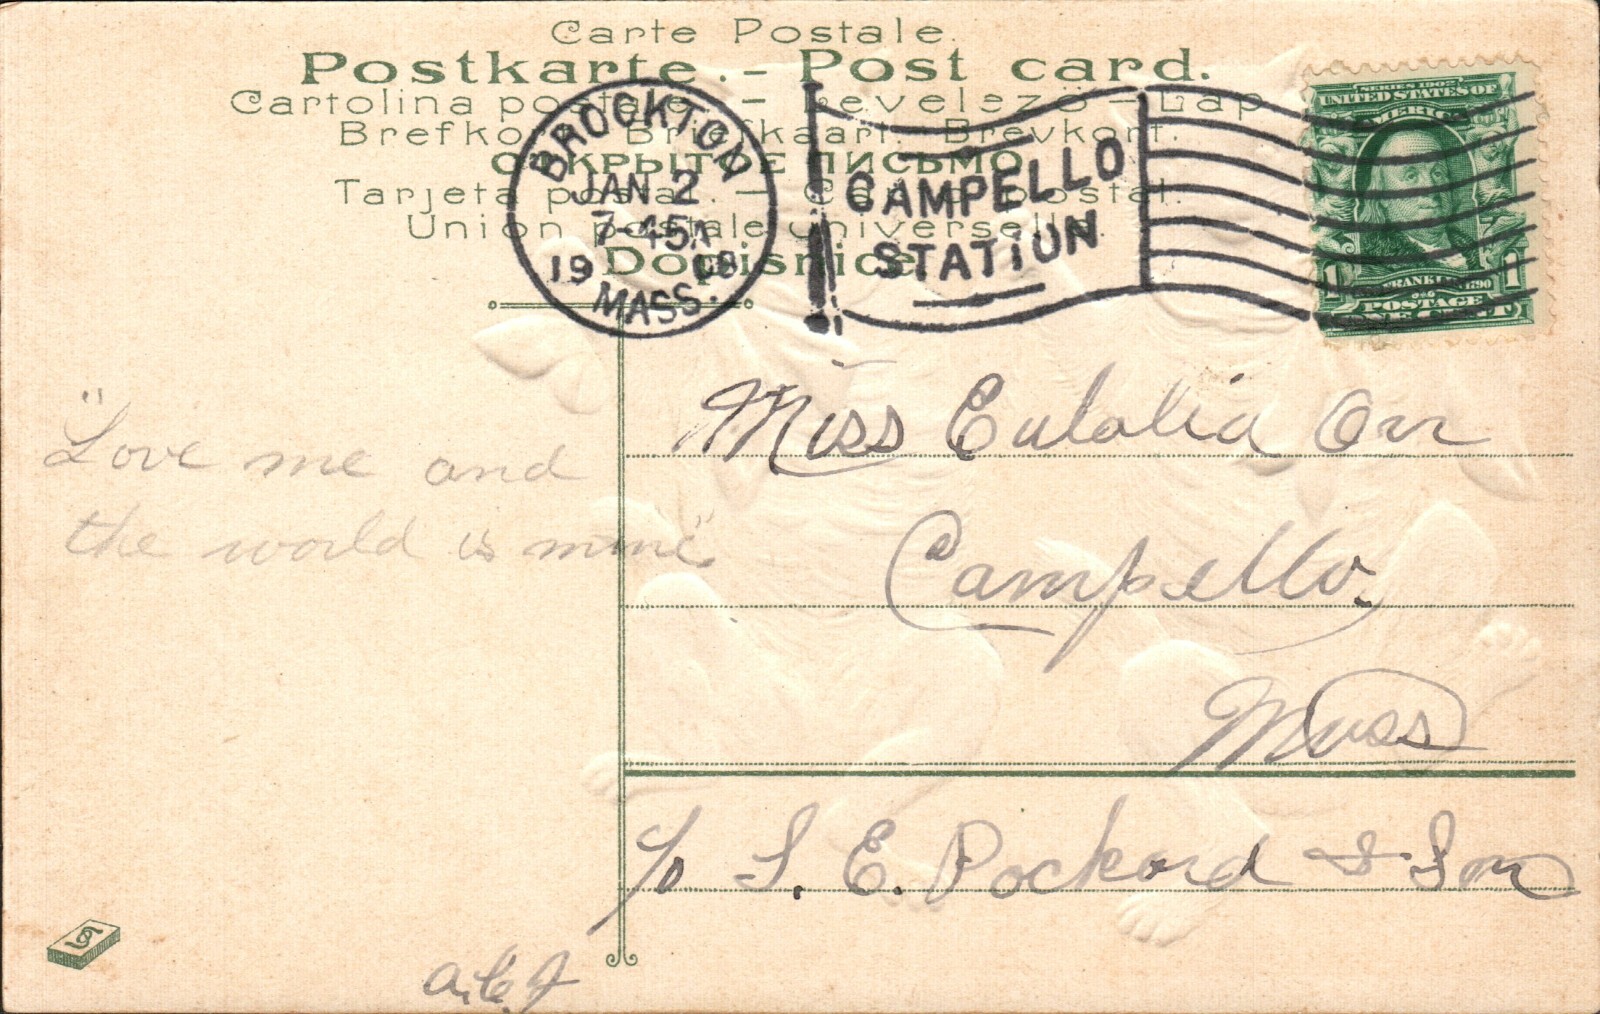 Carte Postale.
Postkarte. – Post card.
Cartolina postale – Levelezö – Lap
Brefkort. Briefkaart. Brevkort.
ОТКРЫТОЕ ПИСЬМО
Tarjeta postal. – Carta postal.
Union postale universelle.
Dopisnice
BROCKTON
JAN 2
7-45A
19 08
MASS.
CAMPELLO
STATION
SERIES 1902
UNITED STATES OF
AMERICA
1 FRANKLIN 1790 1
POSTAGE
ONE CENT
"Love me and
the world is mine"
Miss Eulalia Orr
Campello.
Mass
c/o S. E. Packard & Son